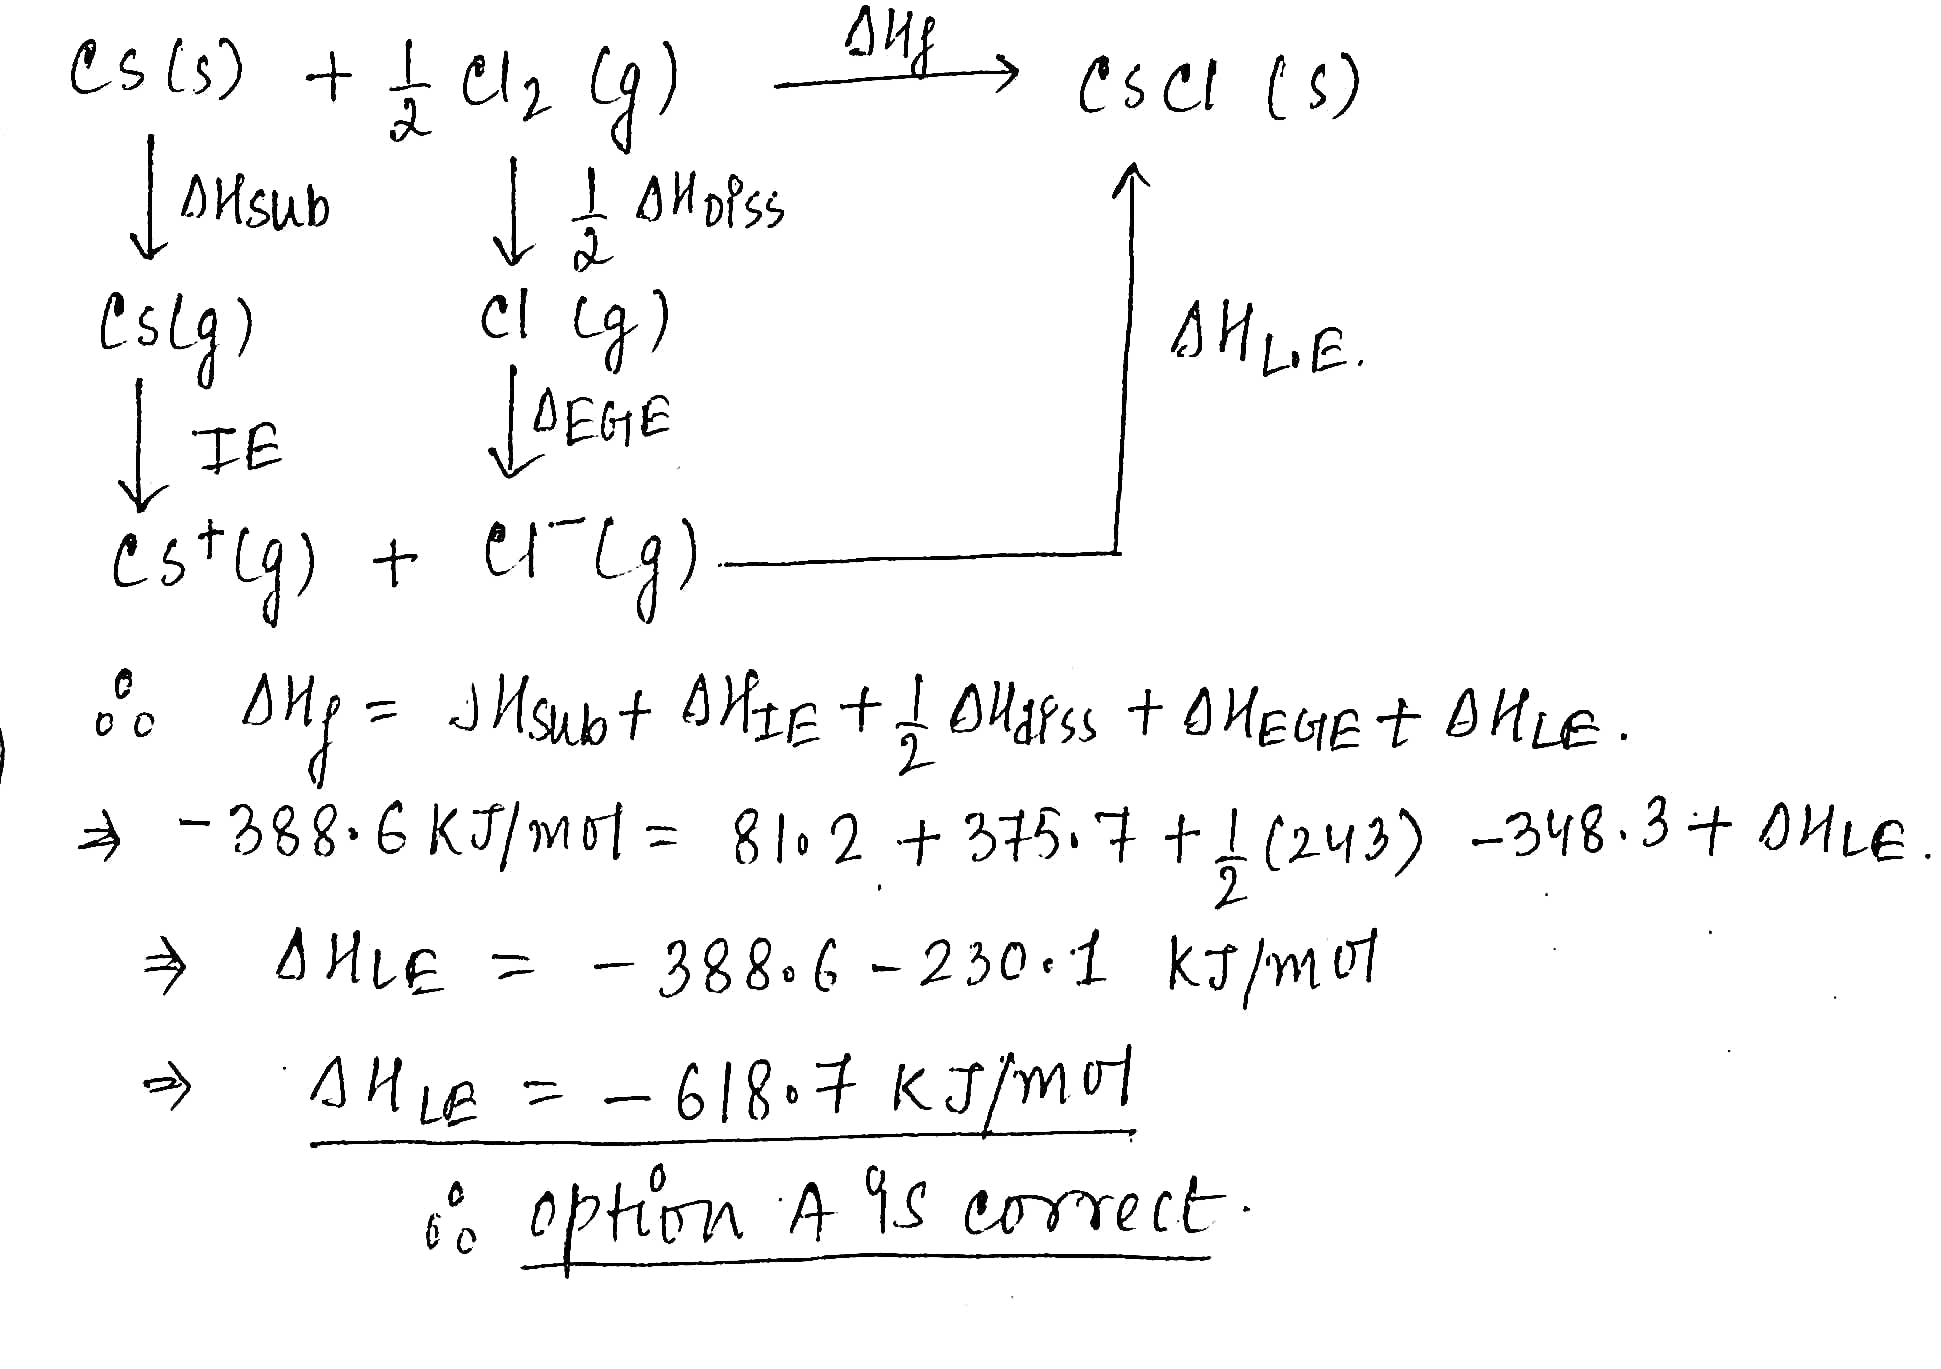 Cs(s) + 1/2 Cl2 (g) ΔHf → CsCl (s)
↓ ΔHsub ↓ 1/2 ΔHDiss
Cs(g) Cl (g) ΔH L.E.
↓ IE ↓ ΔEGE
Cs+(g) + Cl-(g)
∴ ΔHf = ΔHsub + ΔHIE + 1/2 ΔHdiss + ΔHEGE + ΔHLE.
⇒ -388.6 KJ/mol = 81.2 + 375.7 + 1/2 (243) -348.3 + ΔHLE.
⇒ ΔHLE = - 388.6 - 230.1 KJ/mol
⇒ ΔHLE = - 618.7 KJ/mol
∴ option A is correct.